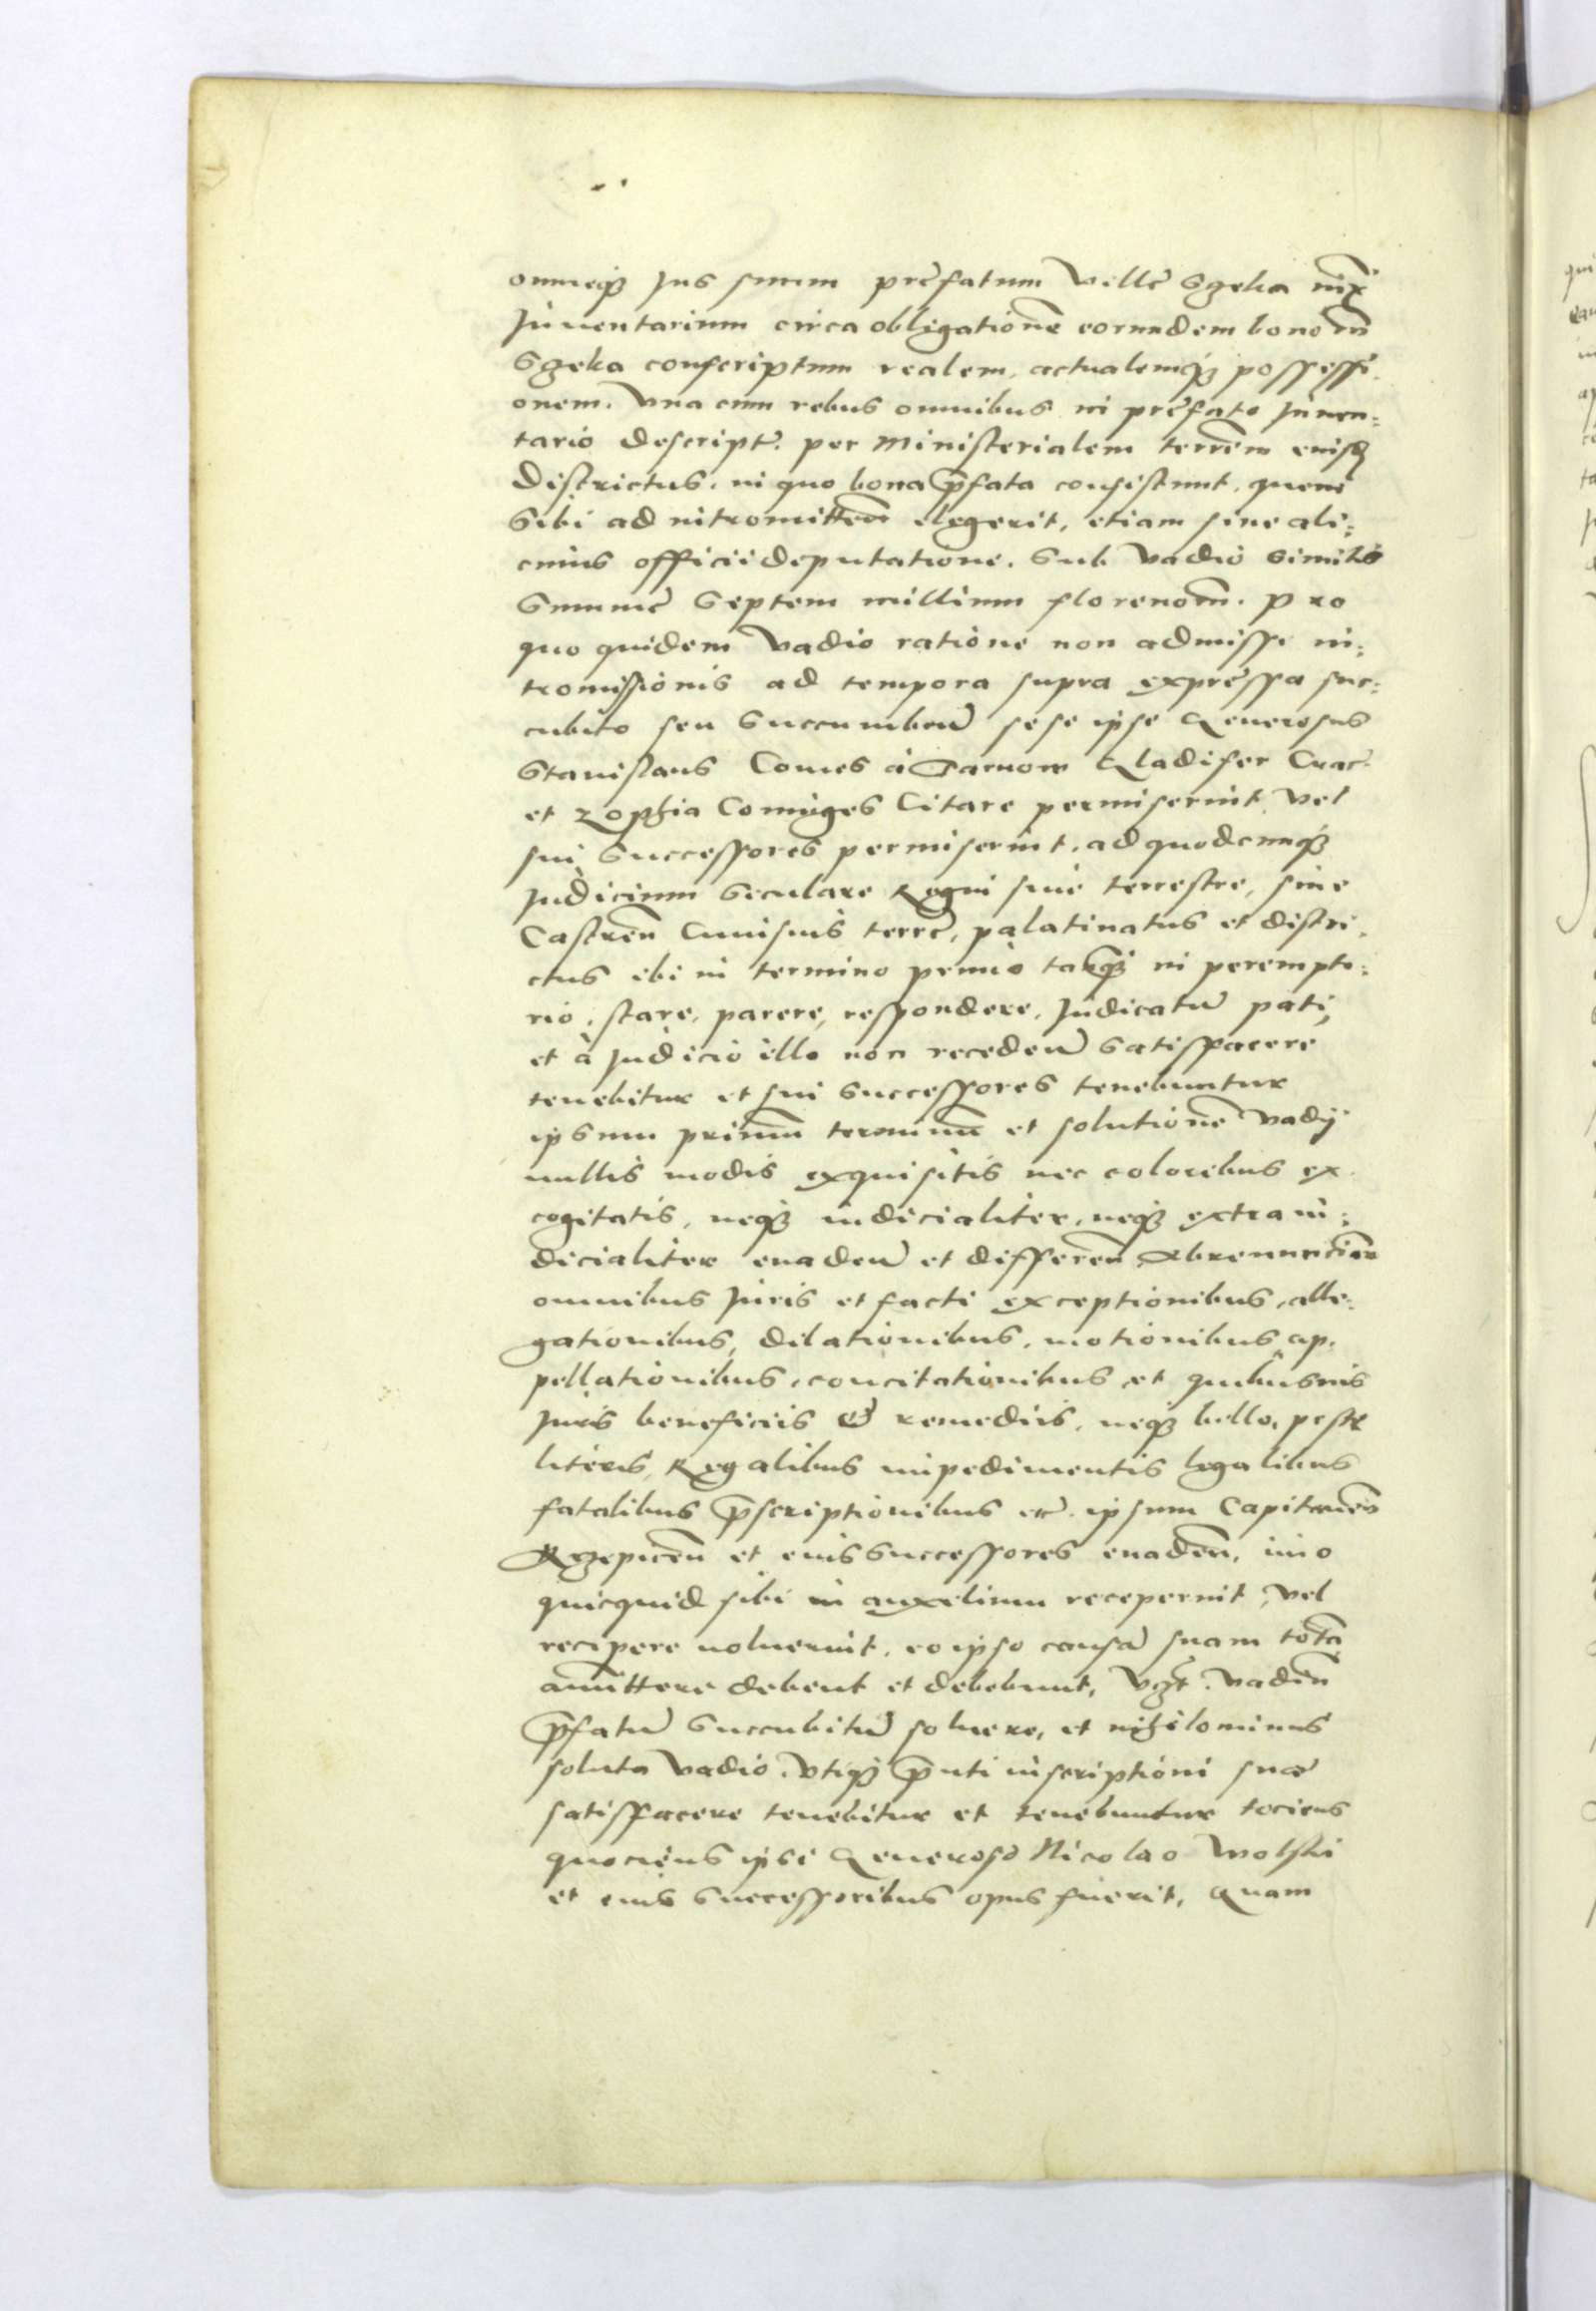 omneq3 Jus suum prefatum ville Sgeka
Juuentarium circa obligatione eorundem bonorū
Sgeka conscriptum realem, actualemq3 possessi-
onem. Vna cum rebus omnibus in prefato Juuen:
tario descript. per Ministerialem terrem
districtus, in quo bona p̄fata consistunt, quem
sibi ad intromitten̄ elegerit, etiam sine ali:
cuius officii deputatione. Sub Vadio simils
Summe Septem millium florenorn̄. Pro
quo quidem Vadio ratione non admisse in:
tromissionis ad tempora supra expressa suc:
cubito seu Succumben̄ sese ipse Generosus
Stanislaus Comes à Tarnow Gladifer Crac.
et Zophia Coniuges Citare permiserint Vel
sui Successores permiserint. ad quodcunq3
Judicium Seculare Regni siue terrestre, siue
Castren̄ Cuiusuis terre, palatinatus et distri-
ctus ibi in termino primo tanq3 in perempto:
rio, stare, parere, respondere, Judicatū pati,
et à Judicio illo non receden̄ Satisfacere
tenebitur et sui Successores tenebuntur
ipsum primū terminū et solutionē Vadij
nullis modis exquisitis nec coloribus ex
cogitatis, neq3 iudicialiter, neq3 extraiu:
dicialiter euaden̄ et differen̄ Abrenuncian̄
omnibus Juris et facti exceptionibus, alle:
gationibus, dilationibus, motionibus, ap-
pellationibus, concitationibus et quibusuis
Juris beneficiis & remediis, neq3 bello, peste
literis Regalibus impedimentis legalibus
fatalibus p̄scriptionibus etc. ipsum Capitaneū
Rzepicen̄ et eius Successores euaden̄, imo
quicquid sibi in auxilium receperint, Vel
recipere uoluerint, eo ipso causā suam totā
amittere debent et debebunt, Vadiū
p̄fatū Succubitū soluere, et nihilominus
soluto Vadio. Vtiq3 p̄uti inscriptioni suæ
satisfacere tenebitur et tenebuntur tociens
quociens ipsi Generoso Nicolao Wolski
et eius Successoribus opus fuerit, Quam